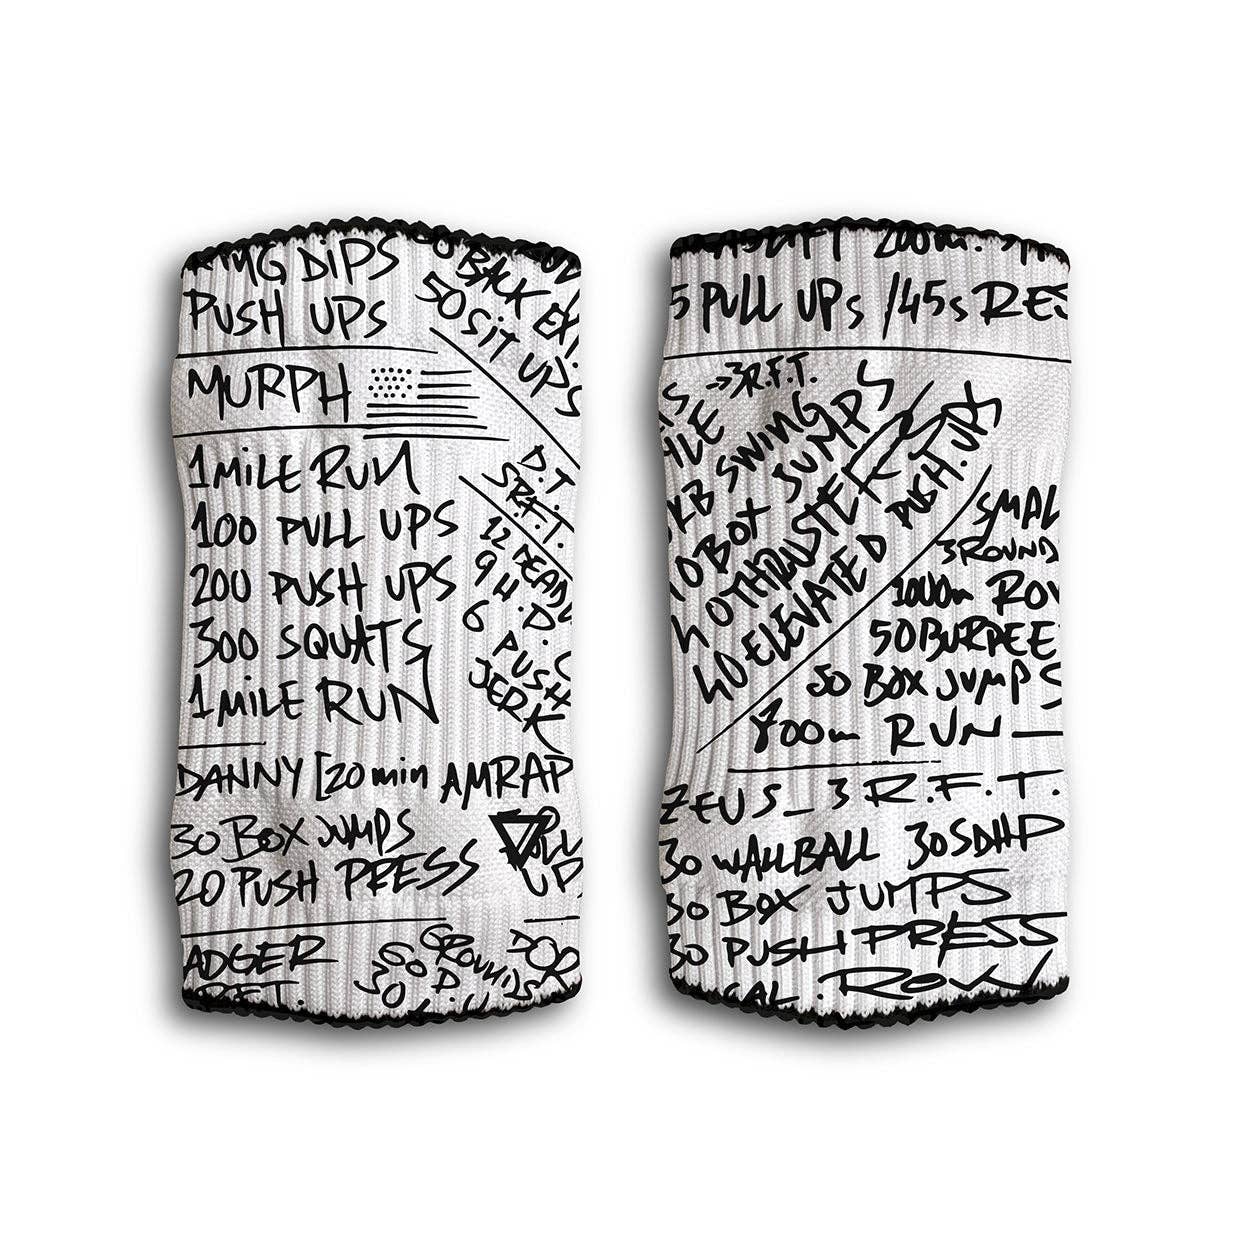 DIPS
PUSH UPS
BACK EX
50 SIT UPS
MURPH
1 MILE RUN
100 PULL UPS
200 PUSH UPS
300 SQUATS
1 MILE RUN
D.T
5R.F.T.
12 DEAD
9 H.P.C
6 PUSH
JERK
DANNY [20 min AMRAP
30 BOX JUMPS
20 PUSH PRESS
ADGER
200m.
5 PULL UPs /45s RES
→3R.F.T.
KB SWING
BOX JUMPS
40 THRUSTE
40 ELEVATED PUSH.UPS
SMAL
3 ROUND
1000m ROW
50 BURPEE
50 BOX JUMPS
800m RUN
ZEUS_3 R.F.T.
30 WALLBALL 30 SDHP
30 BOX JUMPS
30 PUSH PRESS
CAL. ROW